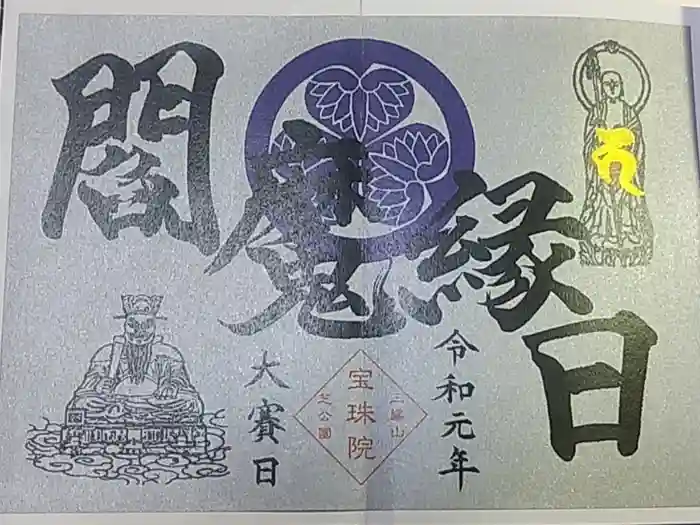 閻魔縁日
大賽日
三縁山
宝珠院
芝公園
令和元年